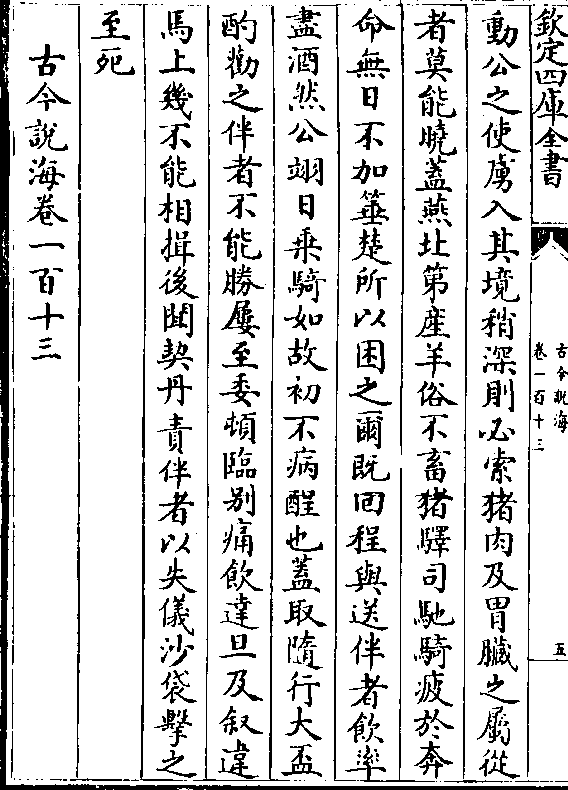 欽定四庫全書
古今說海
卷一百十三
五
動公之使虜入其境稍深則必索猪肉及胃臟之屬從
者莫能曉蓋燕北第産羊俗不畜猪驛司馳騎疲於奔
命無日不加箠楚所以困之爾既回程與送伴者飲率
盡酒然公翊日乗騎如故初不病酲也蓋取隨行大盃
酌勸之伴者不能勝屢至委頓臨别痛飲達旦及叙違
馬上幾不能相揖後聞契丹責伴者以失儀沙袋擊之
至死
古今說海卷一百十三